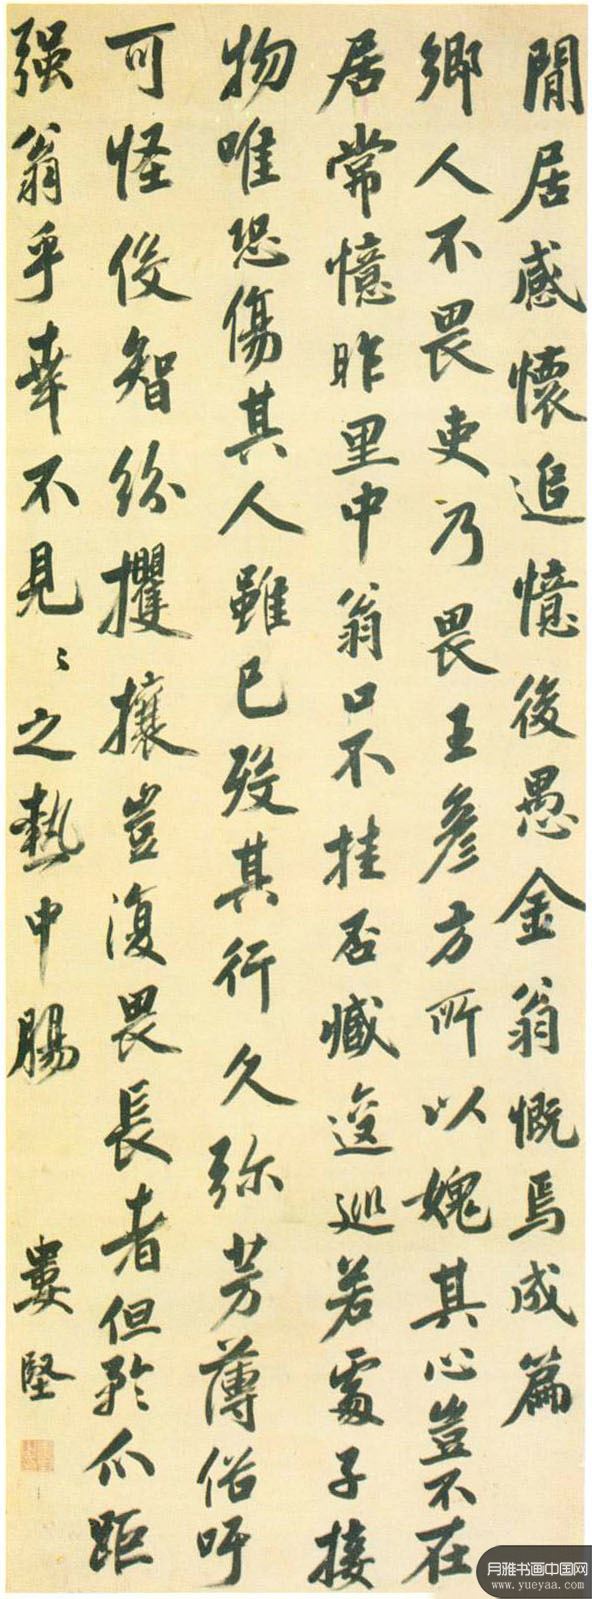 閒居感懷追憶後愚金翁慨焉成篇
鄉人不畏吏乃畏王彥方所以媿其心豈不在
居常憶昨里中翁口不挂否臧逡巡若處子接
物唯恐傷其人雖已歿其行久弥芳薄俗吁
可怪伎智紛攫攘豈復畏長者但矜爪距
强翁乎幸不見〻之熱中腸
婁堅
月雅书画中国网
www.yueyaa.com